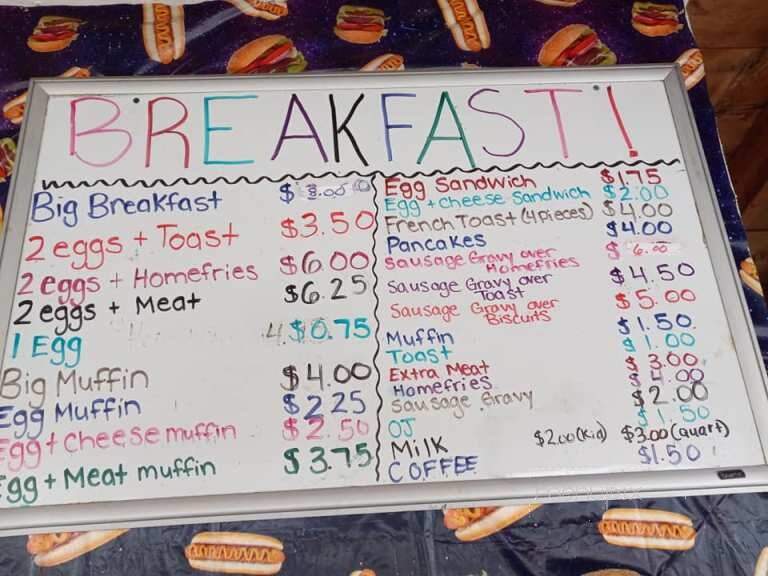 BREAKFAST!
Big Breakfast $ 8.00
2 eggs + Toast $3.50
2 eggs + Homefries $6.00
2 eggs + Meat $6.25
1 Egg $0.75
Big Muffin $4.00
Egg Muffin $2.25
Egg + Cheese muffin $2.50
Egg + Meat muffin $3.75
Egg Sandwich $1.75
Egg + cheese Sandwich $2.00
French Toast (4 pieces) $4.00
Pancakes $4.00
Sausage Gravy over
Homefries $ 6.00
Sausage Gravy over
Toast $4.50
Sausage Gravy over
Biscuits $5.00
Muffin $1.50
Toast $1.00
Extra Meat $3.00
Homefries $4.00
Sausage Gravy $2.00
OJ $1.50
Milk $2.00 (Kid) $3.00 (quart)
COFFEE $1.50